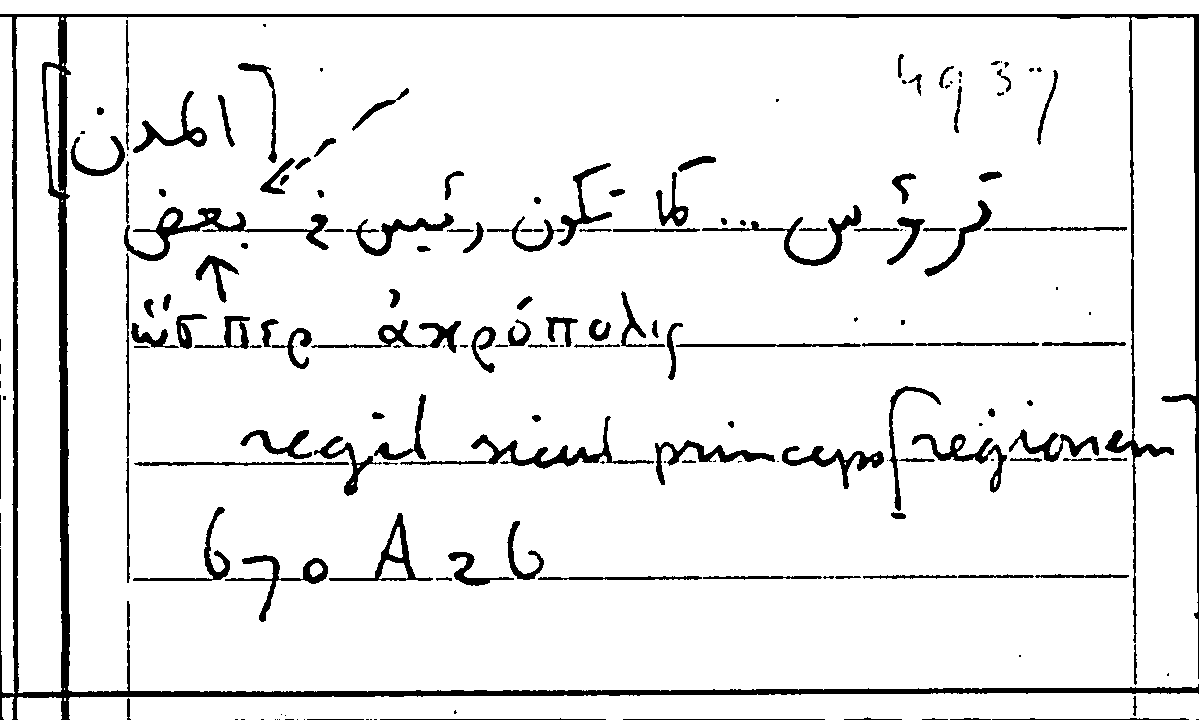 4937
[المدن]
ترؤس ... كما تكون رئيس في بعض
ὥσπερ ἀκρόπολις
regit sicut princeps [regionem]
670 A 26